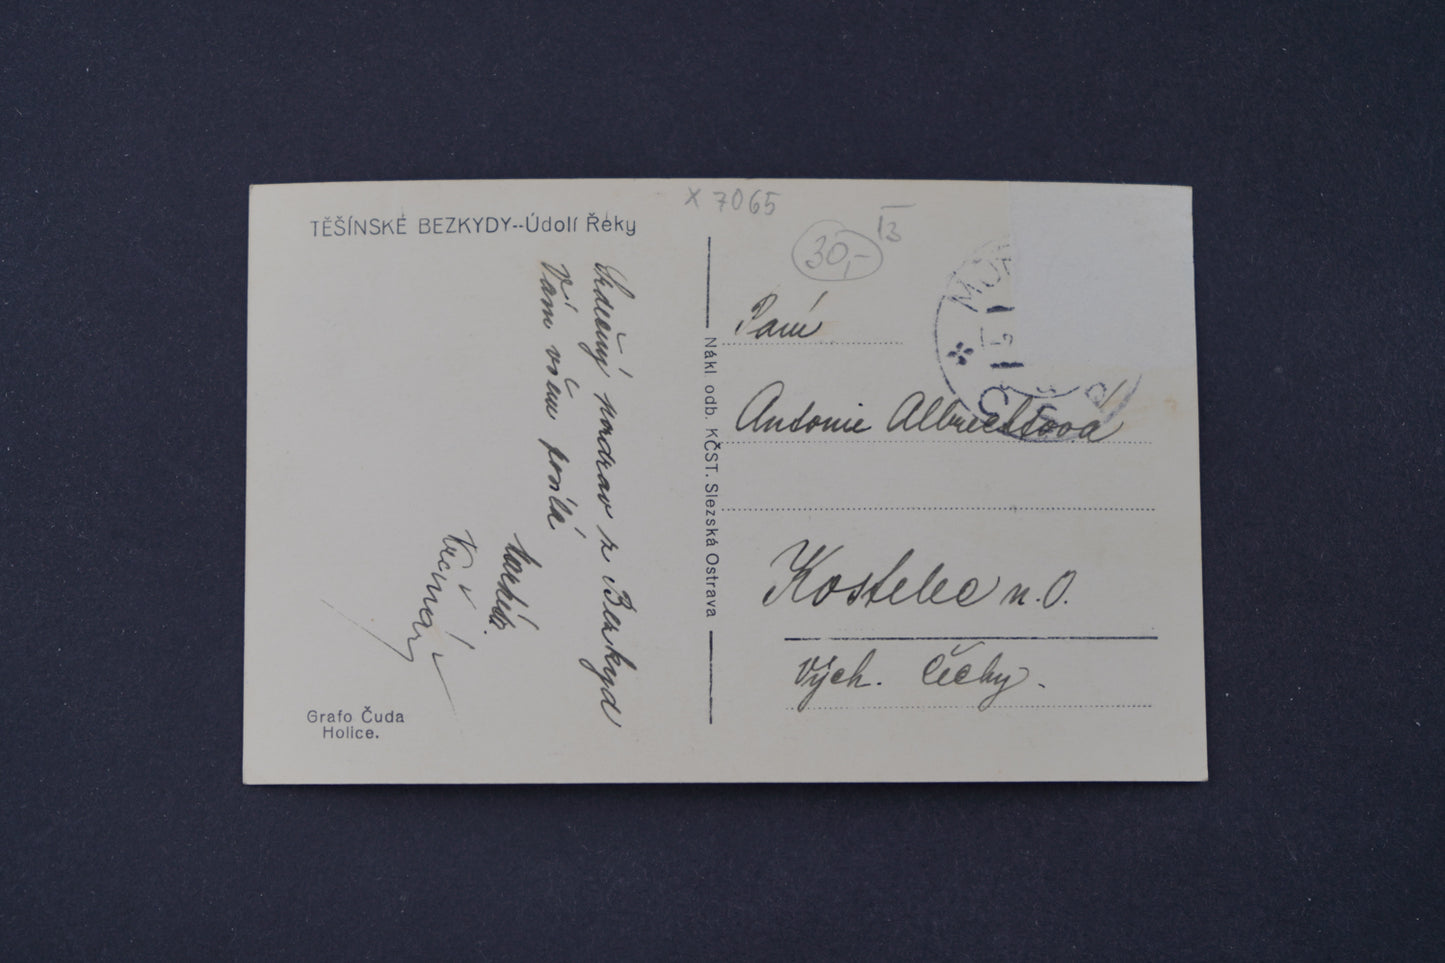 x 7065
TĚŠÍNSKÉ BEZKYDY--Údolí Řeky
30,-
Srdečný pozdrav z Bezkyd
Vám všem posílá
Paní
Antonie Albrechtova
Kostelec n. O.
Vých. Čechy.
Nákl odb. KČST. Slezská Ostrava
Grafo Čuda
Holice.